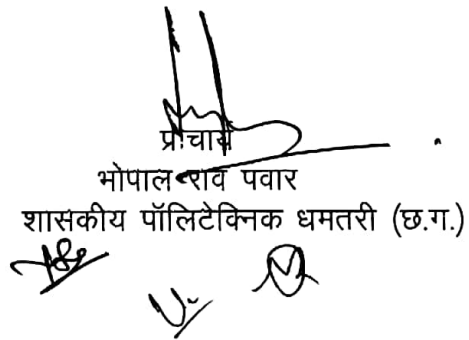 प्राचार्य
भोपाल राव पवार
शासकीय पॉलिटेक्निक धमतरी (छ.ग.)